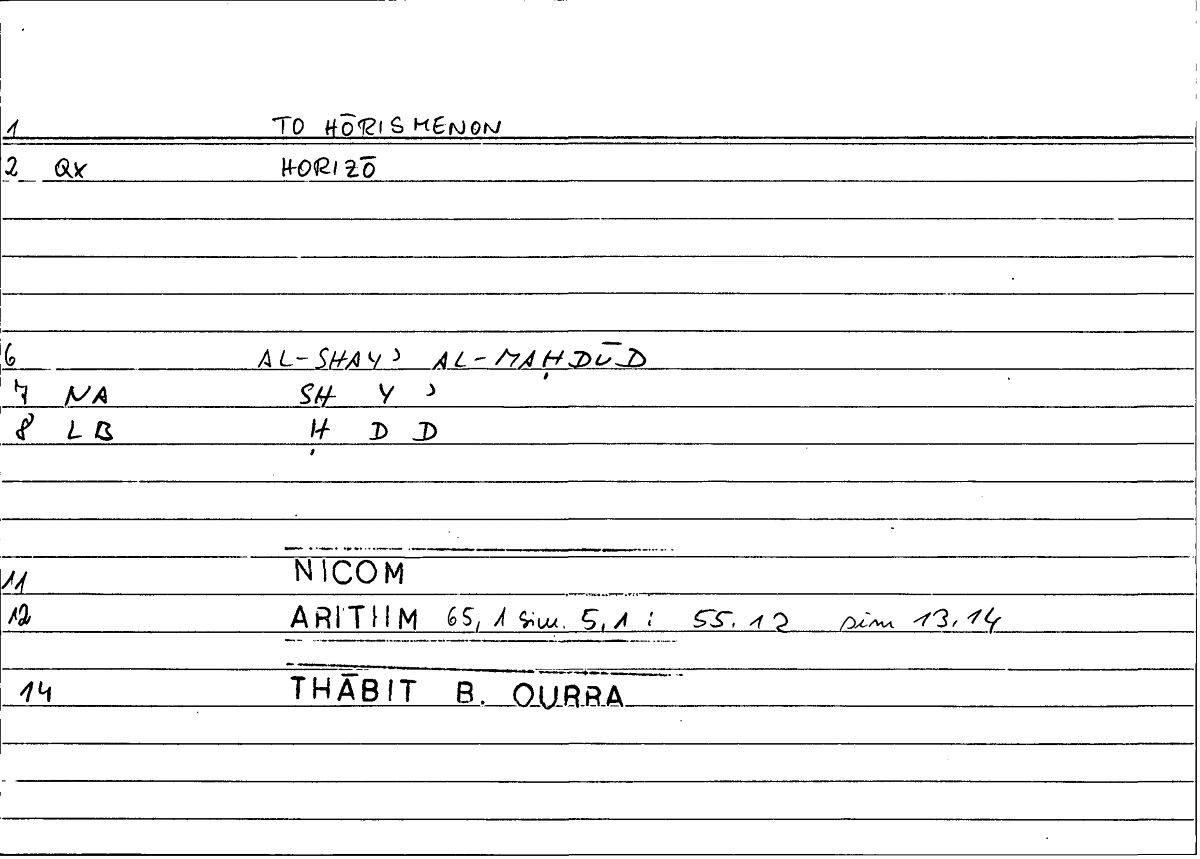 1 TO HŌRISMENON
2 QX HORIZŌ
6 AL-SHAYʾ AL-MAḤDŪD
7 NA SH Y ʾ
8 LB Ḥ D D
11 NICOM
12 ARITHM 65,1 sim. 5,1 : 55.12 sim 13.14
14 THĀBIT B. QURRA